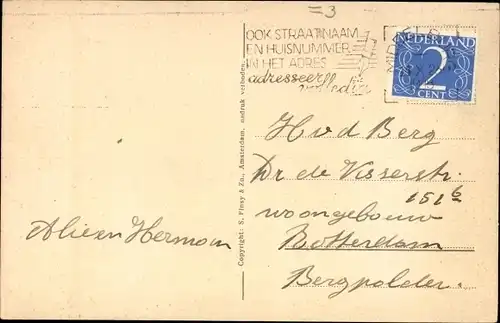 =3
OOK STRAATNAAM
EN HUISNUMMER
IN HET ADRES
adresseert
volledig
NEDERLAND
2
CENT
Copyright: S. Pinsy & Zn., Amsterdam, nadruk verboden.
H v d Berg
Dr de Visserstr.
151b
woongebouw
Rotterdam
Bergpolder.
Alie en Herman